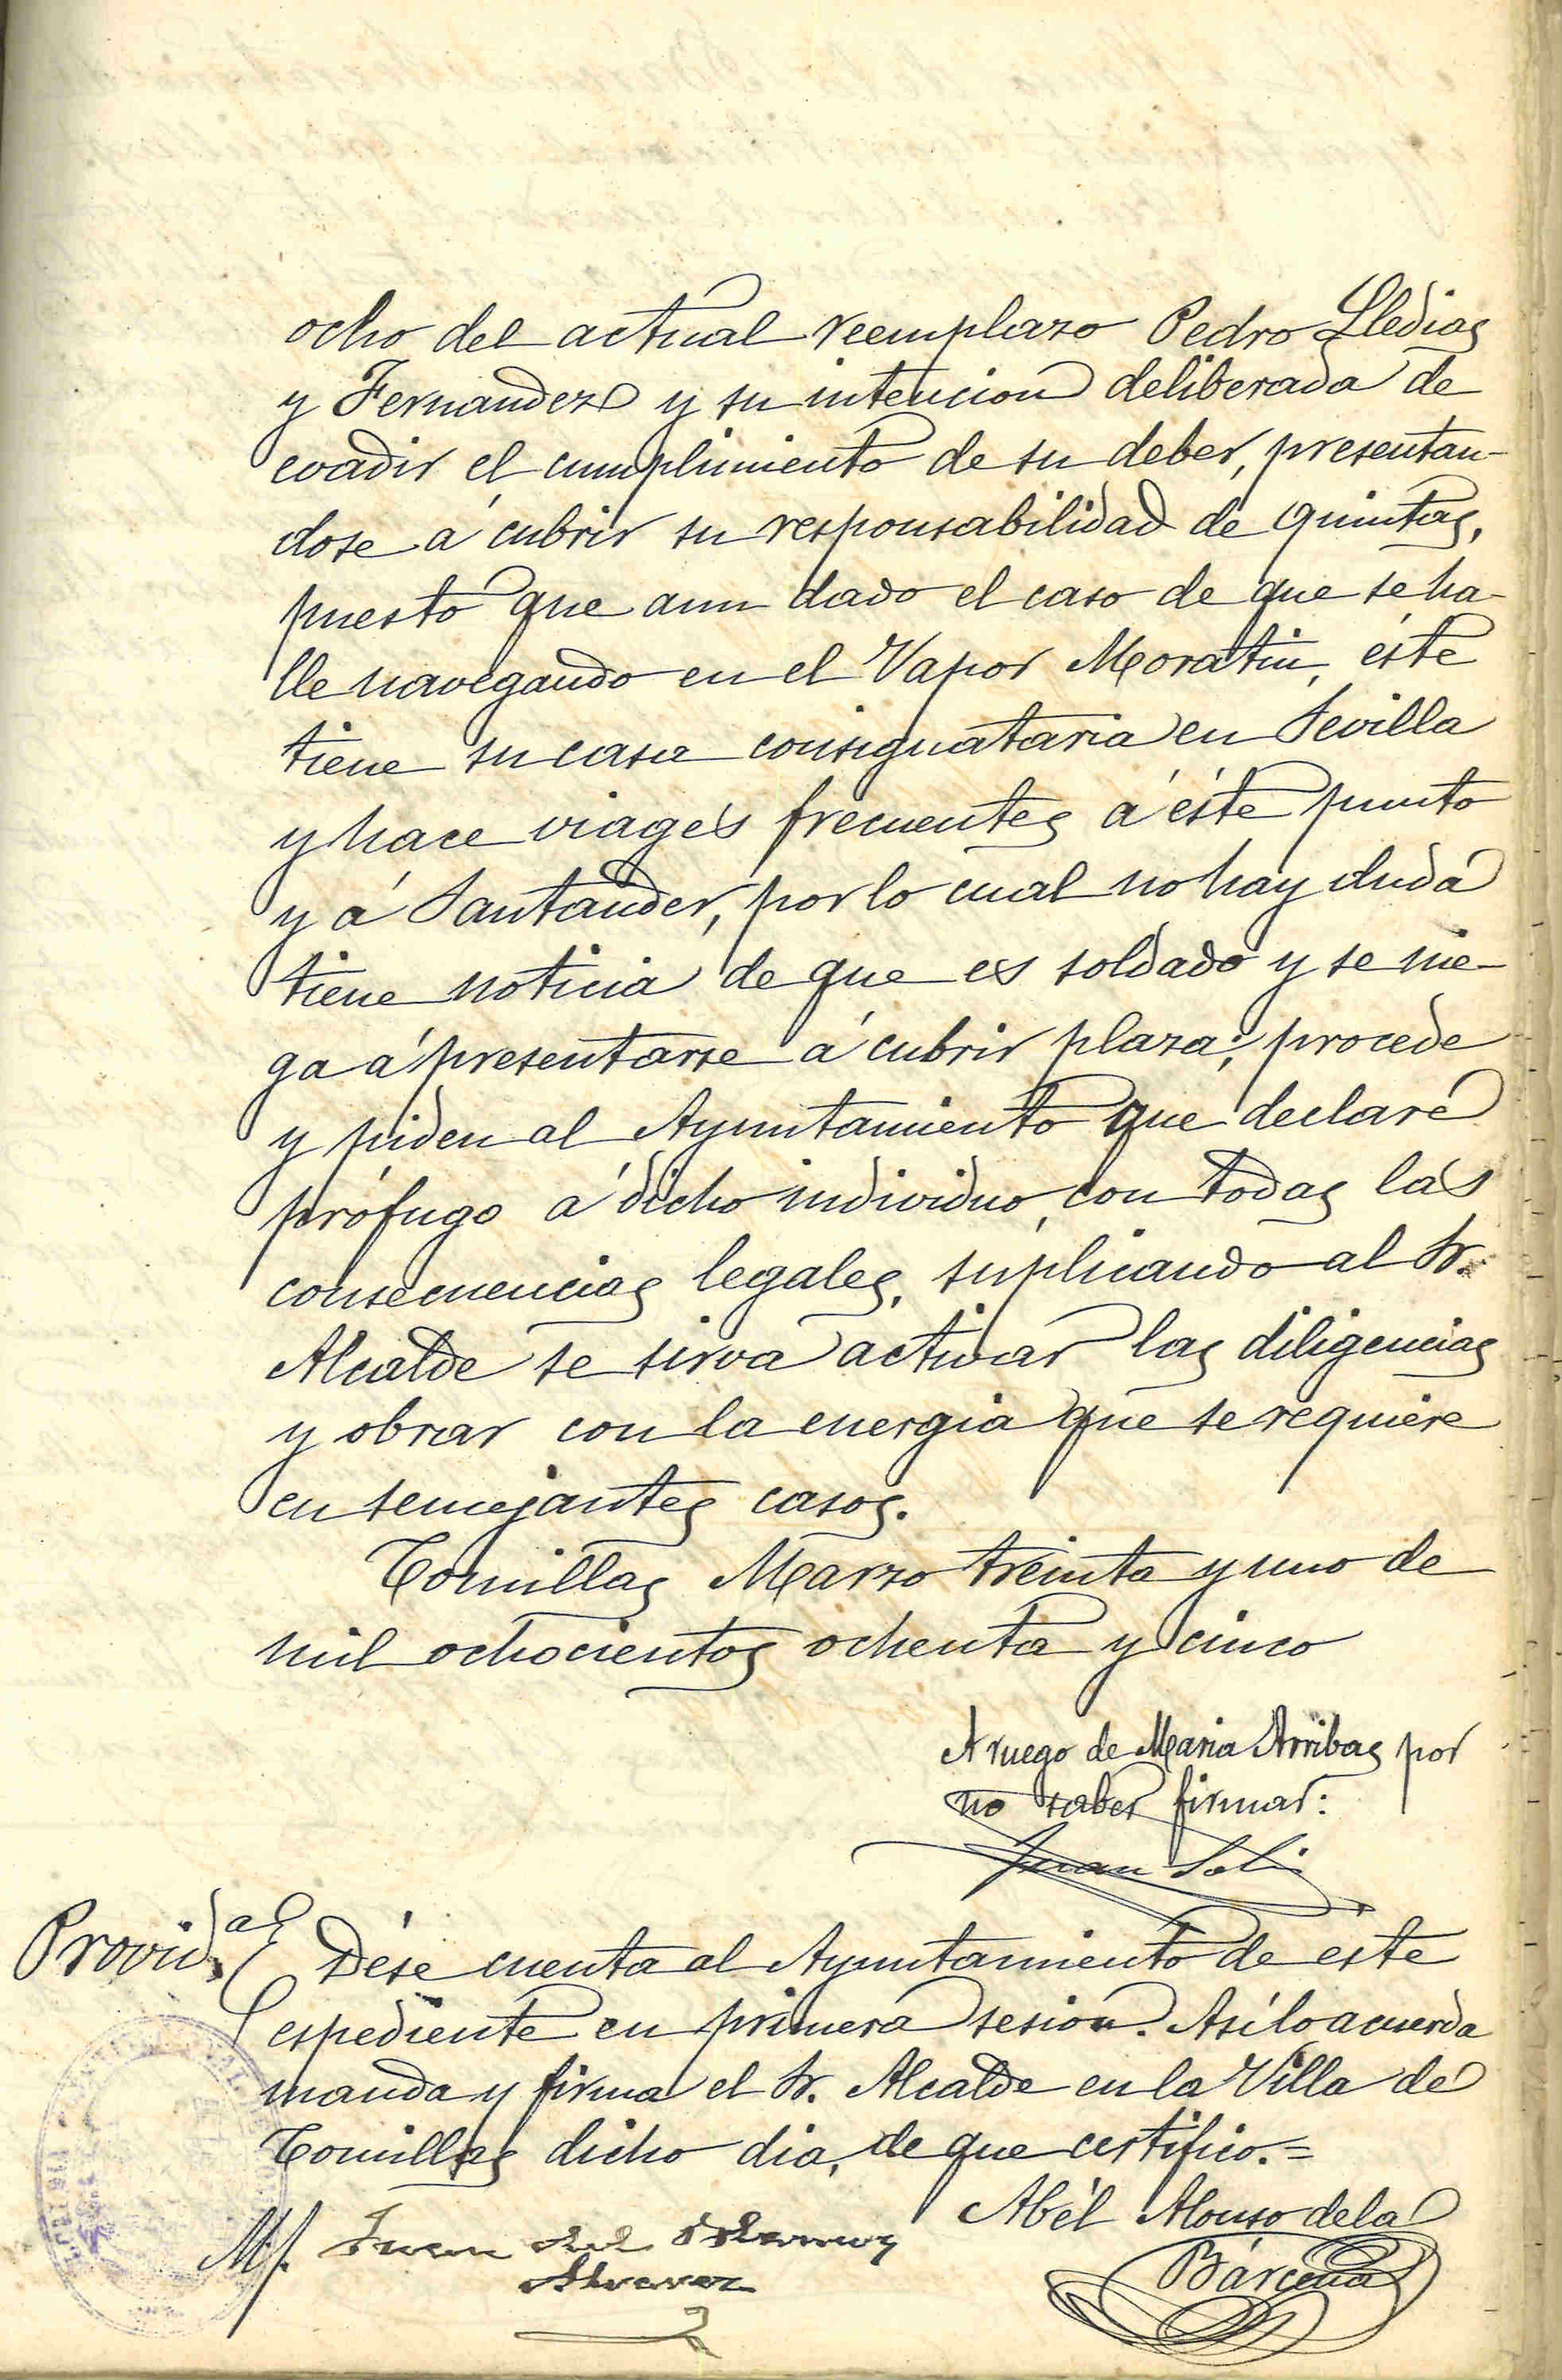 ocho del actual reemplazo Pedro Lledias
y Fernandez y su intencion deliberada de
evadir el cumplimiento de su deber, presentan-
dose á cubrir su responsabilidad de quintas,
puesto que aun dado el caso de que se ha-
lle navegando en el Vapor Moratin, éste
tiene su casa consignataria en Sevilla
y hace viages frecuentes á éste punto
y á Santander, por lo cual no hay duda
tiene noticia de que es soldado y se nie-
ga á presentarse á cubrir plaza; procede
y piden al Ayuntamiento que declare
prófugo á dicho individuo, con todas las
consecuencias legales, suplicando al Sr.
Alcalde se sirva activar las diligencias
y obrar con la energia que se requiere
en semejantes casos.
Comillas Marzo treinta y uno de
mil ochocientos ochenta y cinco
A ruego de Maria Arribas por
no saber firmar:
Juan Solis
Provid.a Dése cuenta al Ayuntamiento de éste
espediente en primera sesion. Asi lo acuerda
manda y firma el Sr. Alcalde en la Villa de
Comillas dicho dia, de que certifico.=
Juan
Abél Alonso de la
Bárcena